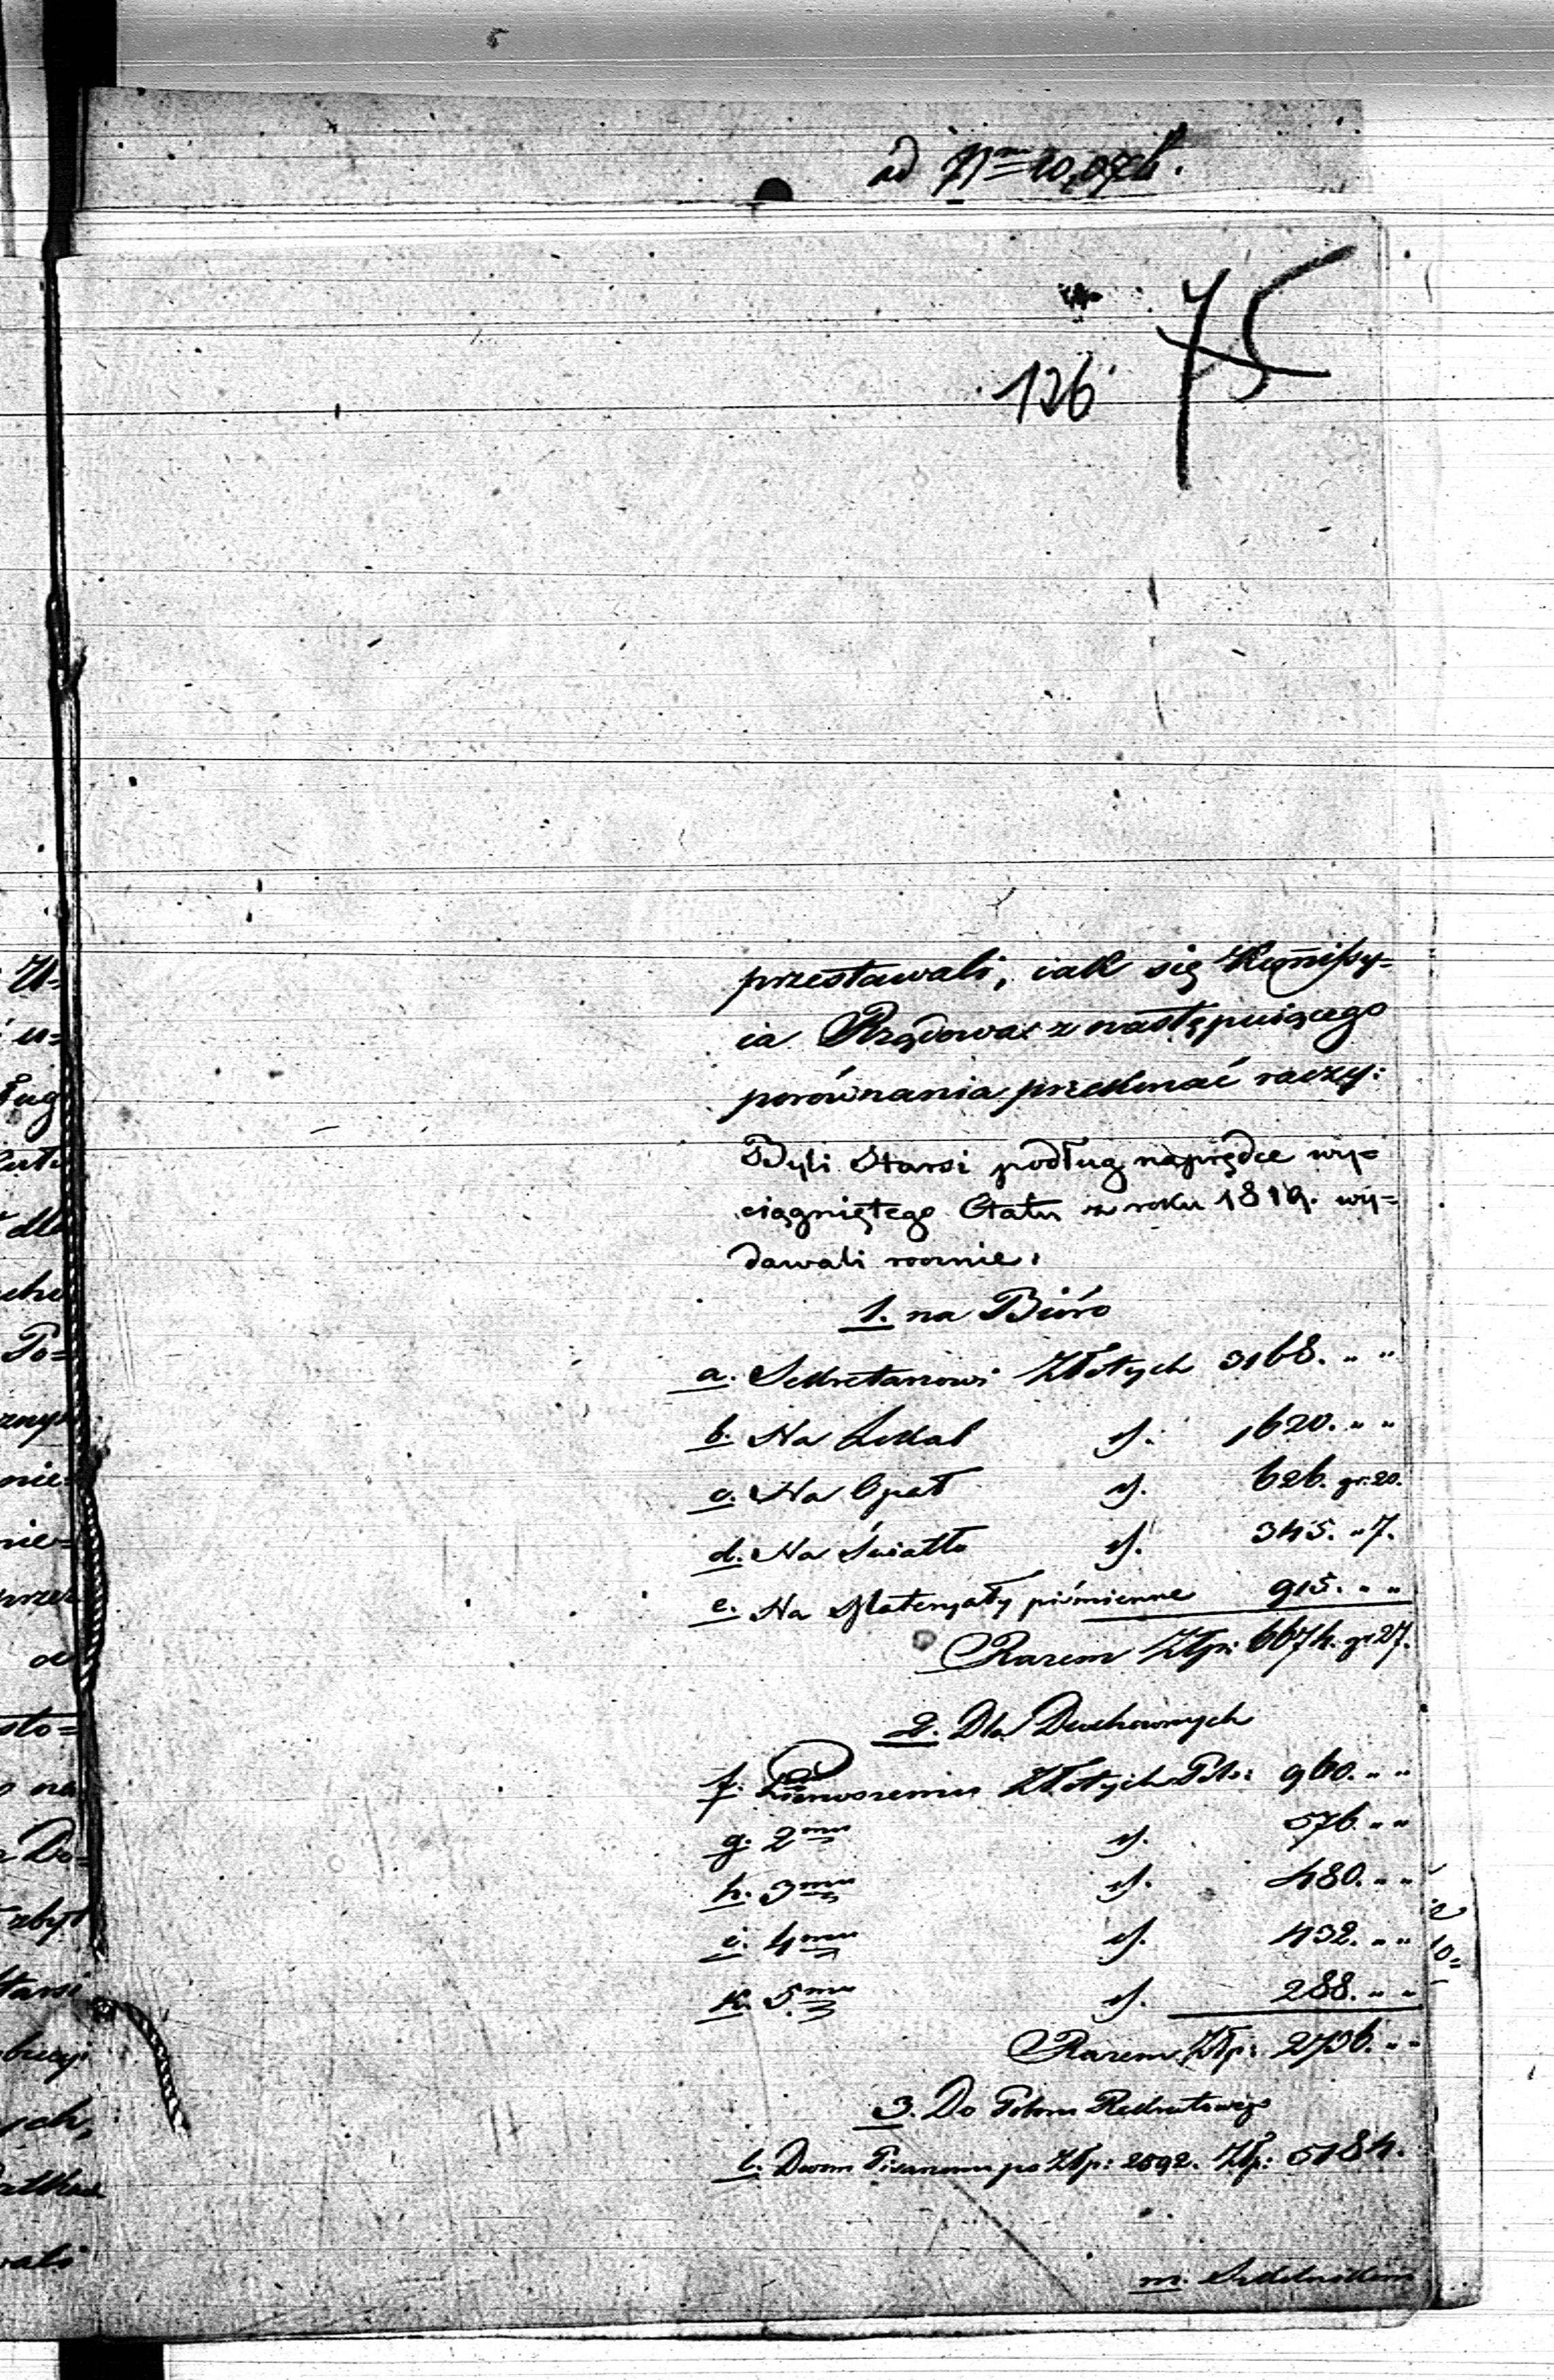 ad N<sup>m</sup> 10,
75
126
przestawali, iak się Kom̄issy=
ia Rządowa z następuiącego
porównania przekonać raczy:
Byli Starsi podług naprędce wy=
ciągniętego Etatu z roku 1819. wy=
dawali rocznie:
1. na Biuro
a. Sekretarzowi Złotych 3168. " "
b. Na Lokal d. 1620. " "
c. Na Opał d. 626. gr: 20.
d. Na Światło d. 345. " 7.
e. Na Materyały piśmienne 915. " "
Razem Złp: 6674. gr 27.
2. Dla Duchownych
f. Pierwszemu Złotych Pol: 960. " "
g. 2<sup>mu</sup> d. 576. " "
h. 3<sup>mu</sup> d. 480. " "
i. 4<sup>mu</sup> d. 432. " "
k. 5<sup>mu</sup> d. 288. " "
Razem Złp: 2736. " "
3. Do Poboru Rekrutowego
l. Dwom Pisarzom po Złp: 2592. Złp: 5184.
m. Szkolnikom